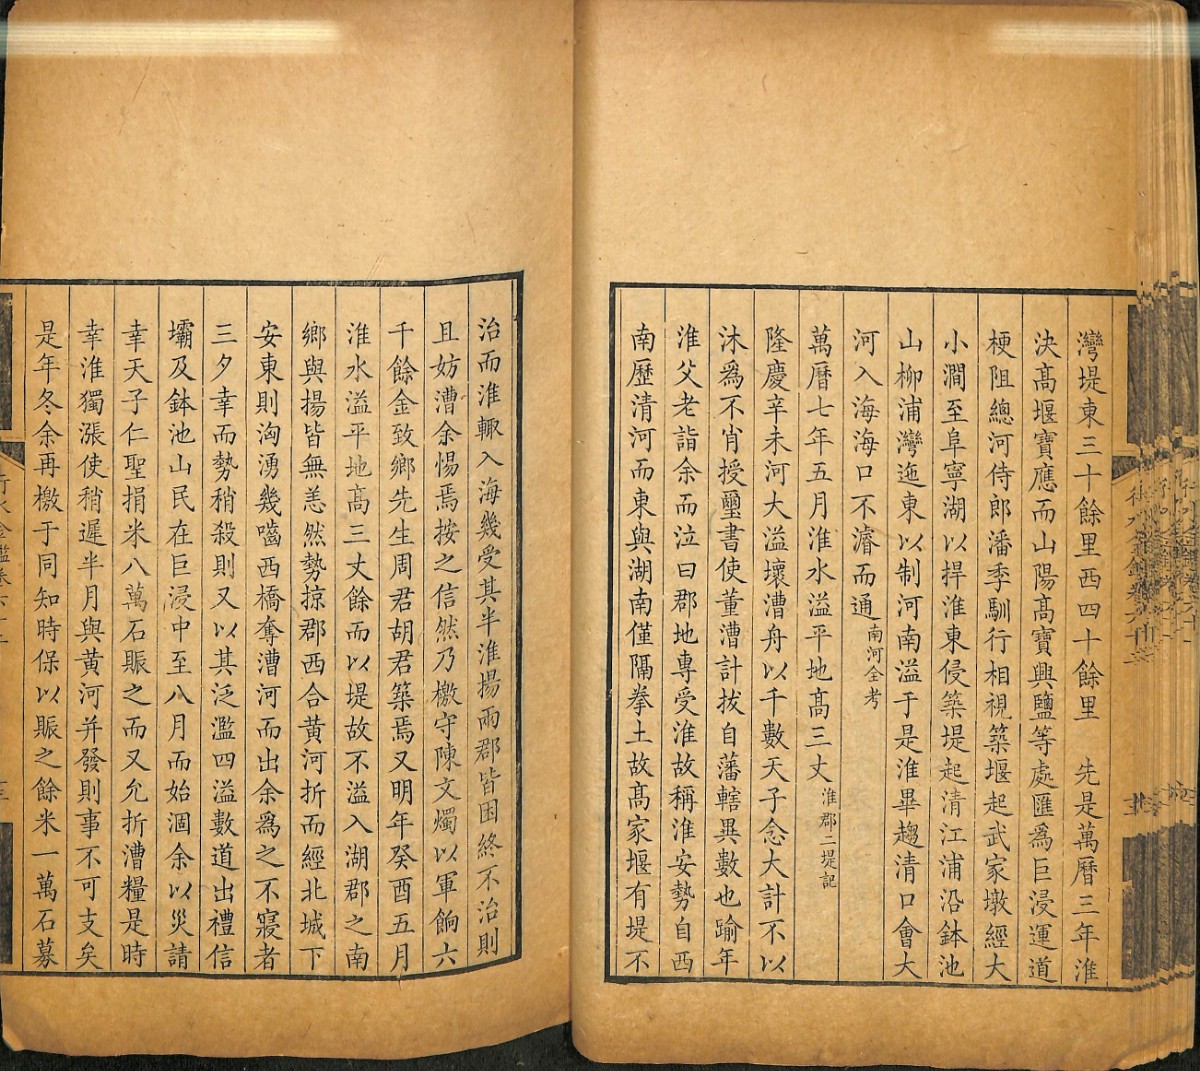 灣堤東三十餘里西四十餘里　先是萬曆三年淮
決高堰寶應而山陽高寶興鹽等處匯為巨浸運道
梗阻總河侍郎潘季馴行相視築堰起武家墩經大
小澗至阜寧湖以捍淮東侵築堤起清江浦沿鉢池
山柳浦灣迤東以制河南溢于是淮畢趨清口會大
河入海海口不濬而通南河全考
萬曆七年五月淮水溢平地高三丈淮郡二堤記
隆慶辛未河大溢壞漕舟以千數天子念大計不以
沐為不肖授璽書使董漕計拔自藩轄異數也踰年
淮父老詣余而泣曰郡地專受淮故稱淮安勢自西
南歷清河而東與湖南僅隔拳土故高家堰有堤不
治而淮輙入海幾受其半淮揚兩郡皆困終不治則
且妨漕余惕焉按之信然乃檄守陳文燭以軍餉六
千餘金致鄉先生周君胡君築焉又明年癸酉五月
淮水溢平地高三丈餘而以堤故不溢入湖郡之南
鄉與揚皆無恙然勢掠郡西合黃河折而經北城下
安東則洶湧幾嚙西橋奪漕河而出余為之不寢者
三夕幸而勢稍殺則又以其泛濫四溢數道出禮信
壩及鉢池山民在巨浸中至八月而始涸余以災請
幸天子仁聖捐米八萬石賑之而又允折漕糧是時
幸淮獨漲使稍遲半月與黃河并發則事不可支矣
是年冬余再檄于同知時保以賑之餘米一萬石募